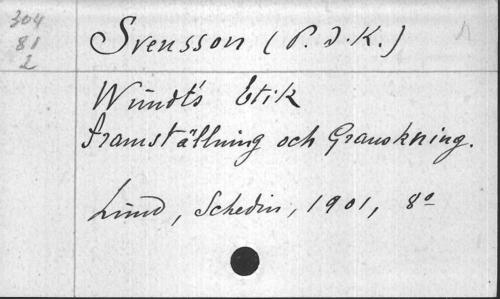 304
81
2
Svensson (P. J. K.)
Wundt's Etik
framställning och Granskning.
Lund, Schedin, 1901, 8º